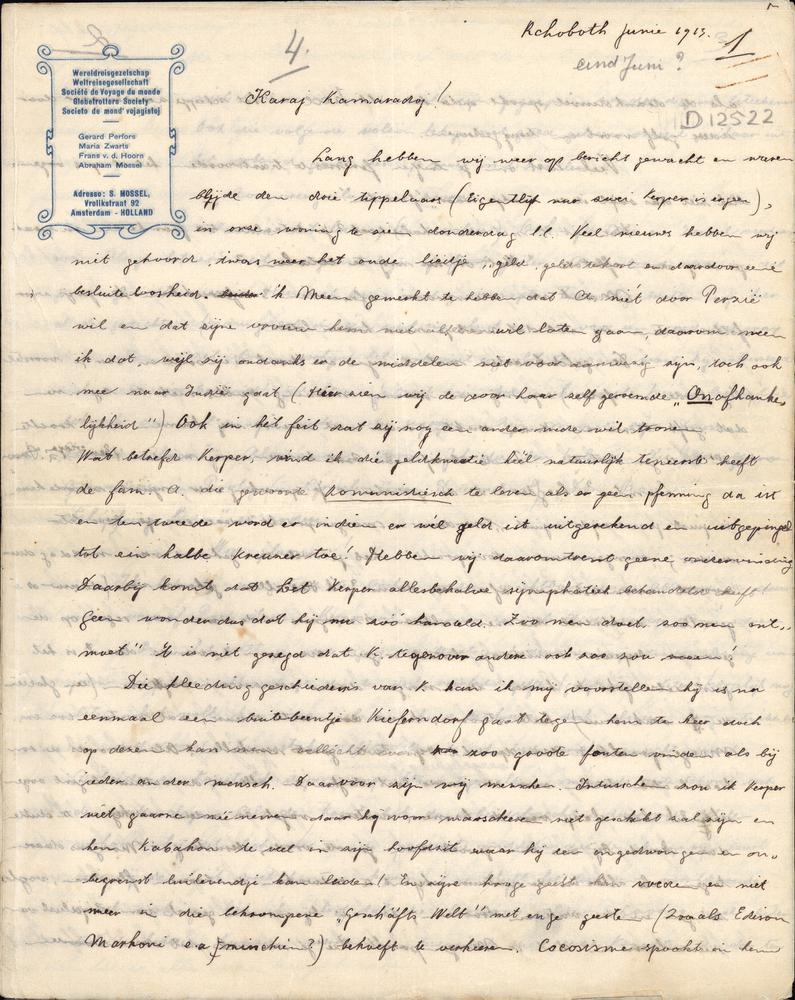 Rehoboth Junie 1913.
eind Juni?
4.
1
D 12522
Wereldreisgezelschap
Weltreisegesellschaft
Société de Voyage du monde
Globetrotters Society
Societo de mond' vojagistoj
Gerard Perfors
Maria Zwarts
Frans v. d. Hoorn
Abraham Mossel
Adresse: S. MOSSEL,
Vrolikstraat 92
Amsterdam - HOLLAND
Karaj Kamaradoj!
Lang hebben wij weer op bericht gewacht en waren
blijde den drie tippelaars (eigentlijk nur zwei Kerper is ergens),
in onze woning te zien donderdag l.l. Veel nieuws hebben wij
niet gehoord, 't was weer het oude liedje, "geld, geld te kort en daardoor eene
besluiteloosheid. 'k Meen gemerkt te hebben dat A. niet door Perzië
wil en dat zijne vrouw hem niet wil laten gaan, daarom meen
ik dat, wijl zij ondanks er de middelen niet voor aanwezig zijn, toch ook
mee naar Indië gaat (Hier zien wij de door haar zelf geroemde "Onafhanke-
lijkheid") Ook in het feit dat zij nog een ander mede wil troonen.
Wat betreft Kerper, vind ik die geldkwestie heel natuurlijk ten eerste heeft
de fam. A. die gewoonte Komunistisch te leven als er geen pfenning da ist
en ten tweede word er indien er wél geld ist uitgerekend en uitgepingel
tot ein halbe Kreuner toe! Hebben wij daaromtrent geene ondervinding
Daarbij komt dat het Kerper allesbehalve simphatiek behandeld heeft
geen wonder dus dat hij nu zoó handeld. Zoo men doet, zoo men ont-
moet" Er is niet gezegd dat K. tegenover andere ook zoo zou
Die kleeding geschiedenis van K. kan ik mij voorstellen hij is nu
eenmaal een buitebeentje Kieferndorf gaat tegen hem te keer doch
op dezen kan men vellicht even zoo groote fouten vinden als bij
ieder ander mensch. Daarvoor zijn wij menschen. Intusschen zou ik Kerper
niet gaarne meenemen daar hij voor marscheeren niet geschikt zal zijn en
hem Kabakon te veel in zijn hoofd zit waar hij een ongedwongen en on-
begrensd luilevendje kan leiden! En zijne hooge geest kan voeden en niet
meer in die bekrompene "Geschäfts Welt" met enge geesten (Zooals Edison
Markoni e.a. misschien?) behoeft te verkeeren. Cocosisme spookt in hem